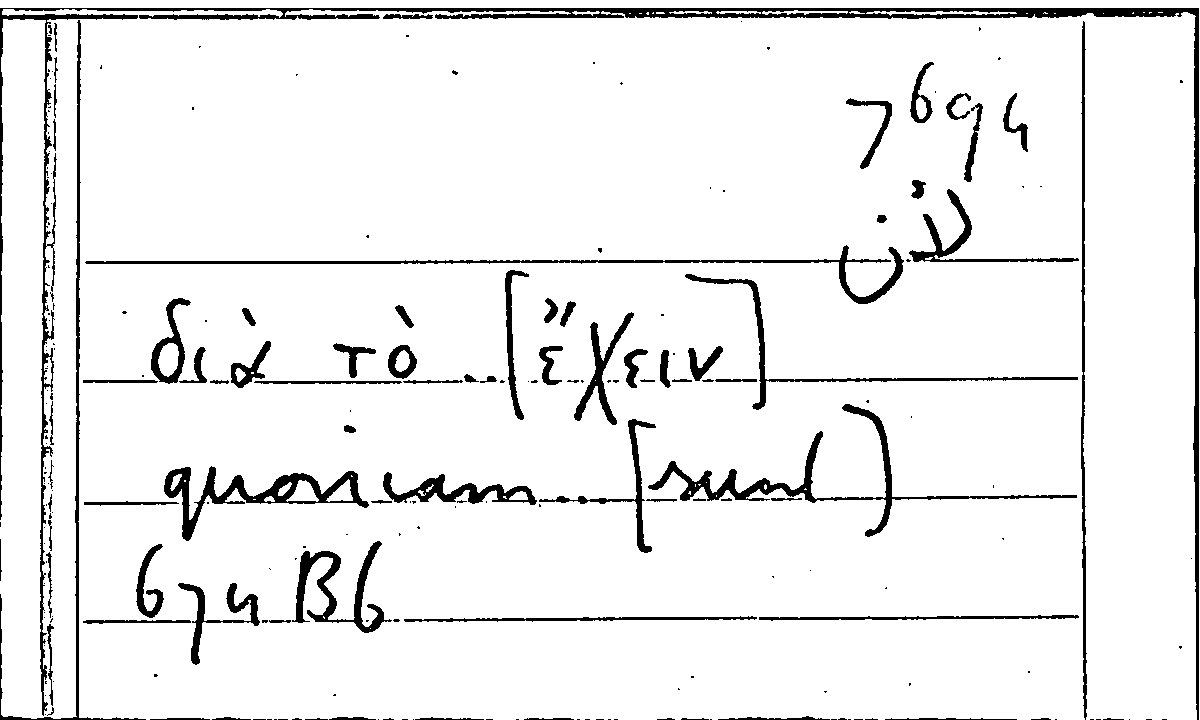 7694
لأن
διὰ τὸ .. [ἔχειν]
quoniam ... [sunt]
674 B6